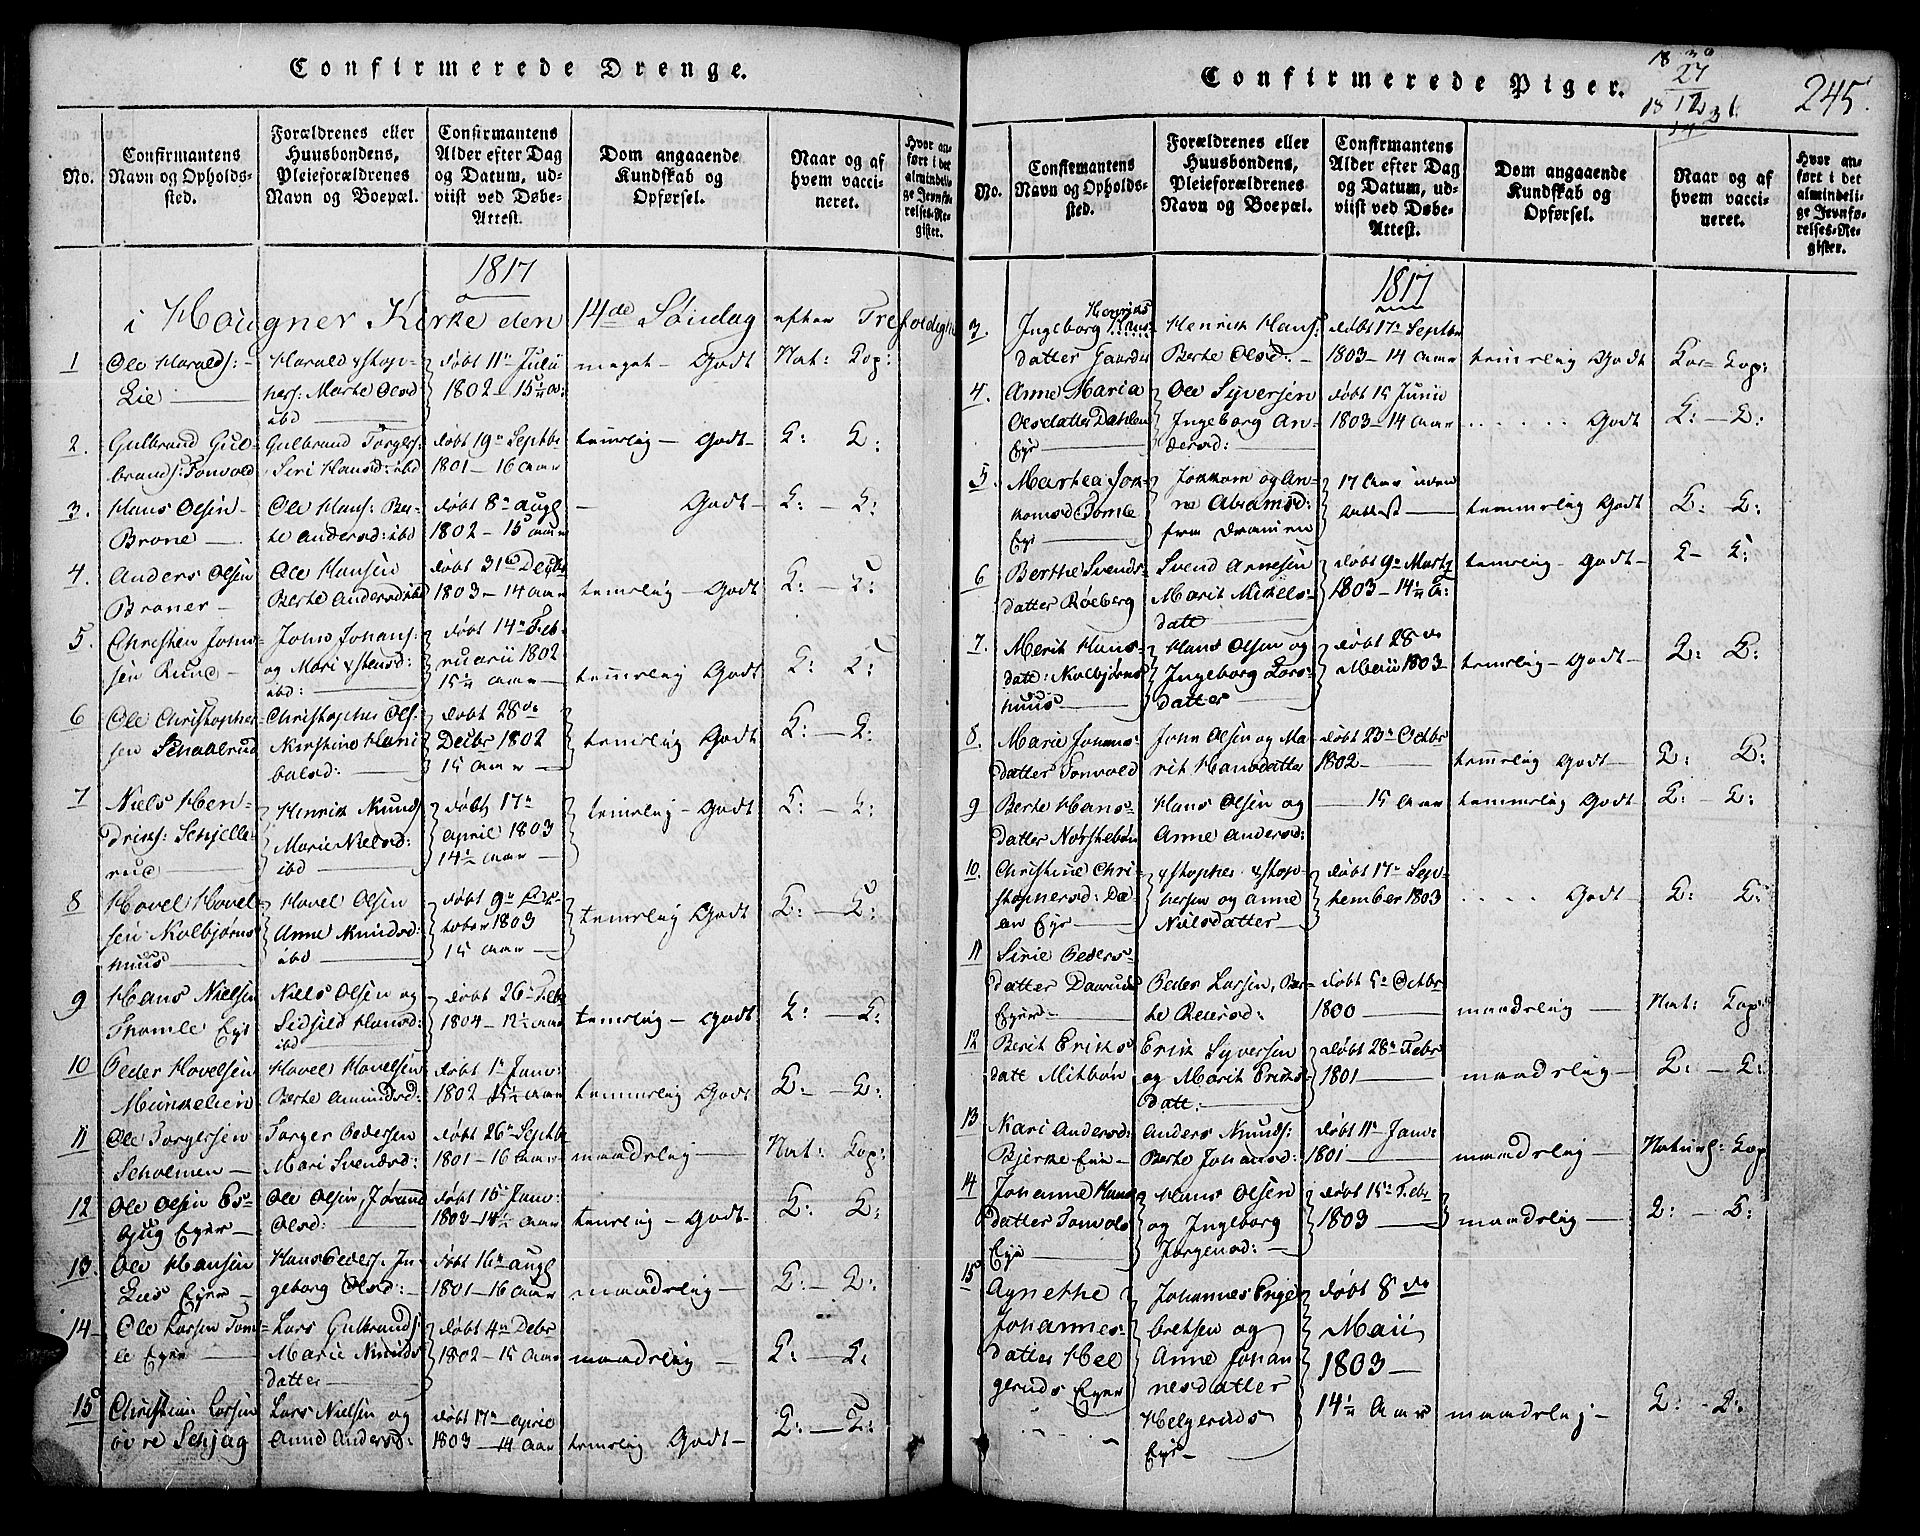 Confirmerede Drenge.
No.
Confirmantens
Navn og Opholds-
sted.
Forældrenes eller
Huusbondens,
Pleieforældrenes
Navn og Boepæl.
Confirmantens
Alder efter Dag
og Datum, ud-
viist ved Døbe-
Attest.
Dom angaaende
Kundskab og
Opførsel.
Naar og af
hvem vacci-
neret.
Hvor an-
ført i det
almindeli-
ge Jevnfø-
relses-Re-
gister.
1817
i Hougner Kirke den 14de Søndag efter Trefoldigh
1
Ole Haralds:
Lie
Harald
Marthe Olsd
ibd
døbt 11te Julii
1802 - 15 a:
meget Godt
Nat: Cop:
2.
Gulbrand Gul-
brands: Tonvold
Gulbrand Torgers:
Siri Hansd: ibd
døbt 19de Septbr
1801 - 16 Aar
temlig - Godt
3.
Hans Olsen
Brone
Ole Hans: Ber-
the Andersd: ibd
døbt 8de Aug
1802 - 15 Aar
Godt
4.
Anders Olsen
Broner
Ole Hansen
Berthe Andersd ibd
døbt 31te Decbr
1803 - 14 Aar
temlig - Godt
5.
Christen John-
sen Rund
John Johans:
og Mari
ibd:
døbt 14de Feb-
ruarii 1802
15½ Aar
temmelig Godt
6
Ole Christopher-
sen Schaalerud
Christopher Ols:
Kirstine Hani
balsd:
døbt 28de
Decbr 1802
15 Aar
temlig Godt
7
Niels Hen-
drichs: Schjelle-
rud
Henrich Knuds
Marie Nielsd:
ibd
døbt 17de
April 1803
14½ Aar
temlig - Godt
8
Hovel Hovel
sen Kolbjørns
huus
Hovel Olsen
Anne Knudsd:
ibd
døbt 9de Oc-
tober 1803
15 Aar
temlig Godt
9
Hans Nielsen
Thomle Eye
Niels Olsen og
Sidsild Hansd:
ibd
døbt 26de Febr
1804 - 12½ Aar
temlig - Godt
10
Peder Hovelsen
Munkelien
Hovel Hovelsen
Berthe Amundsd:
døbt 1te Janv:
1802 15½ Aar
temmelig Godt
11
Ole Torgersen
Scholmen
Torger Pedersen
Mari Svendsd:
døbt 26de Septbr
1801 - 16 Aar
maadelig
Nat: Cop:
12
Ole Olsen Es-
bjug Eyer
Ole Olsen, Jørand
Olsd:
døbt 15de Janv:
1803 - 14½ Aar
temlig - Godt
13.
Ole Hansen
Lies Eyer
Hans Peders: In-
geborg Olsd:
døbt 16de Aug
1801 - 16 Aar
maadelig
14
Ole Larsen Tom-
le Eyer
Lars Gulbrands
Marie Knuds
datter
døbt 4de Debr
1802 - 15 Aar
maadelig
15
Christian Larsen
øvre Schjag
Lars Nielsen og
Anne Andersd:
døbt 17de April
1803 - 14 Aar
temlig Godt
Confirmerede Piger.
18 30
27
18 12 31
245.
No.
Confirmantens
Navn og Opholds-
sted.
Forældrenes eller
Huusbondens,
Pleieforældrenes
Navn og Boepæl.
Confirmantens
Alder efter Dag
og Datum, ud-
viist ved Døbe-
Attest.
Dom angaaende
Kundskab og
Opførsel.
Naar og af
hvem vacci-
neret.
Hvor an-
ført i det
almindeli-
ge Jevnfø-
relses-Re-
gister.
1817
3.
Ingeborg
datter Gaarder
Henrich Hans:
Berthe Olsd:
døbt 17de Septbr
1803 - 14 Aar
temmelig Godt
Cop:
4.
Anne Maria
Olsdatter Dahlen
Eye
Ole Syversen
Ingeborg An-
dersd:
døbt 15 Junii
1803 - 14 Aar
. . . . . Godt
5.
Marthea Jon-
Tomle
Eye
og An-
ne Abramsd:
fra Dramen
17 Aar uden
Attest
temmelig Godt
6
Berthe Svends-
datter Røeberg
Svend Arnesen
Marit Mikkels-
datt
døbt 9de Martz
1803 - 14½ A:
temlig - Godt
7.
Merit Hans-
datt: Kolbjørns
huus
Hans Olsen og
Ingeborg Lars-
datter
døbt 28de
Maii 1803
temlig - Godt
8.
Marie Johans-
datter Tonvold
John Olsen og Ma-
rit Hansdatter
døbt 23de Octbr
1802
temmelig Godt
9
Berthe Hans-
datter Norskebøn
Hans Olsen og
Anne Andersd:
15 Aar
temmelig Godt
10.
Christine Chri-
stophersd: Dæ-
len Eye
hersen og Anne
Nielsdatter
døbt 17de Sep-
tember 1803
. . . . Godt
11
Sirie Peders-
datter Daarud
Eyer
Peder Larsen, Ber-
the Reiersd:
døbt 5te Octbr
1800
maadelig
Nat: Cop:
12
Berit Eriks-
datt Mithbøn
Erik Syversen
og Marit Eriks-
datt:
døbt 28de Febr
1801
maadelig
13
Kari Andersd:
Bjerke Eye
Anders Knuds:
Berthe Johansd:
døbt 11te Janv:
1801
maadelig
Naturl: Cop
14
Johanne Hans
datter Tonvold
Eye
Hans Olsen
og Ingeborg
Jørgensd:
døbt 15de Feb
1803
maadelig
15
Agnethe
Johannes-
datter Hel
geruds Eyer
Johannes Enge
bretsen og
Anne Johan
nesdatter
Helgeruds
Eye
døbt 8de
Maii
1803
14½ Aar
maadelig